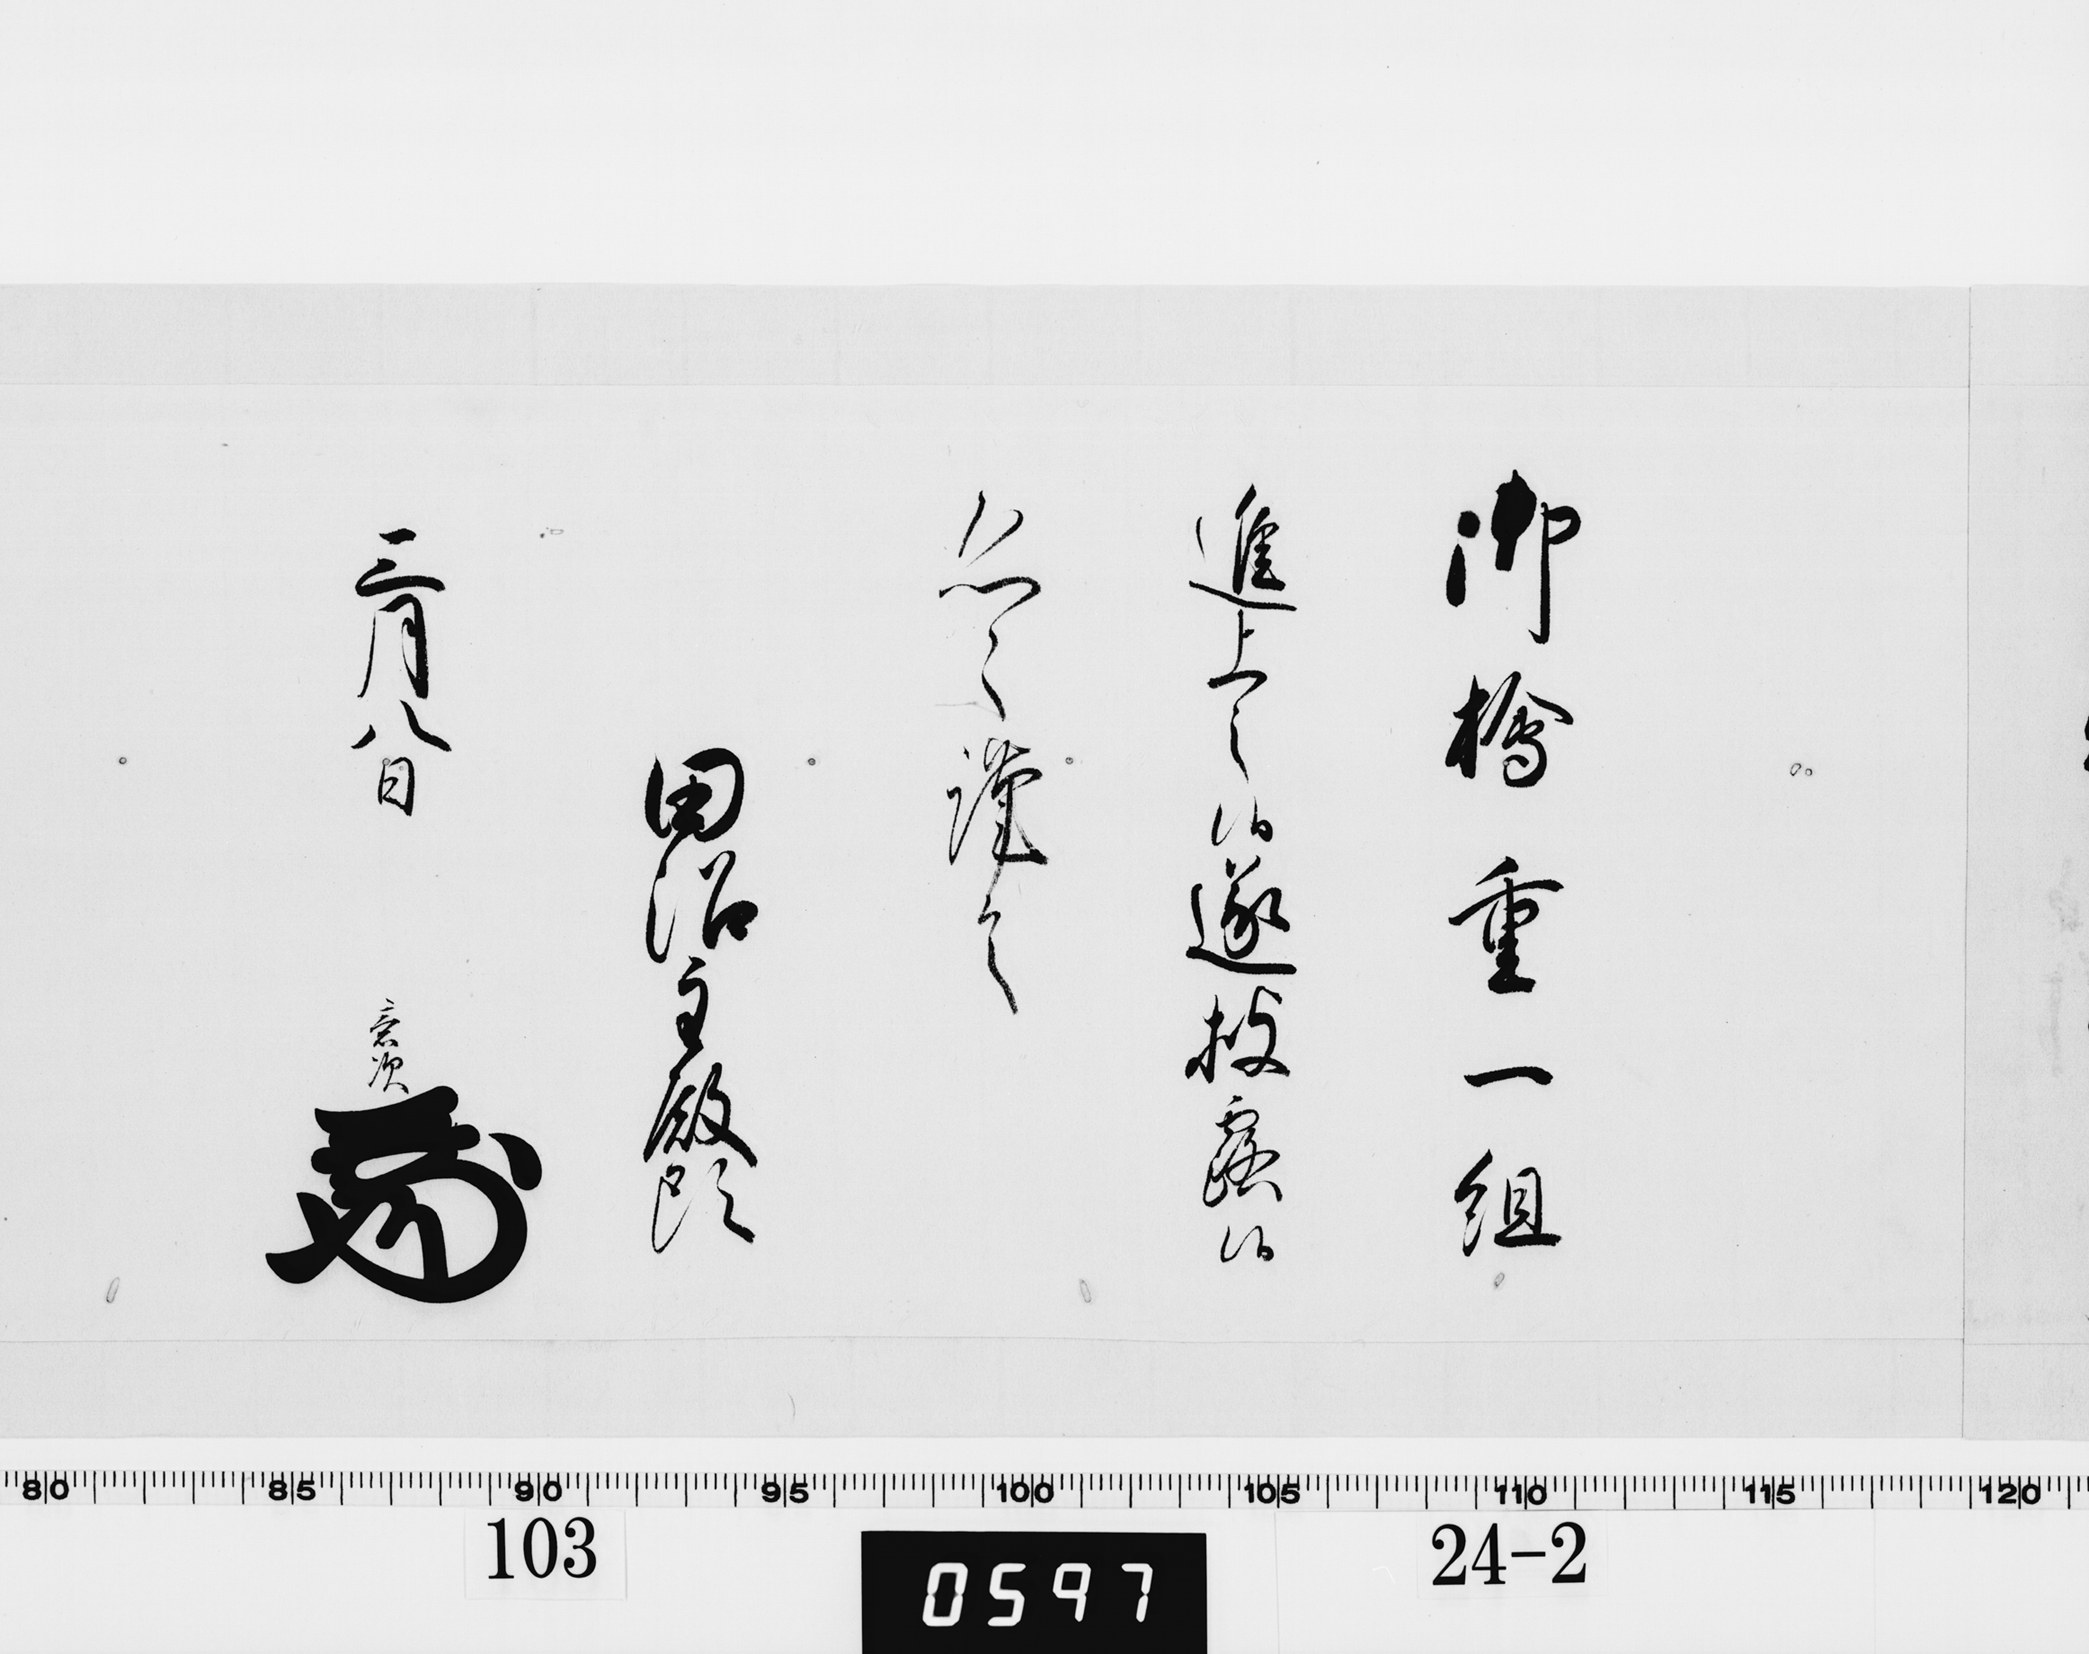 御檜重一組
進上之候遂披露候
恐々謹言
田沼主殿頭
三月八日 意次
80 85 90 95 100 105 110 115 120
103
0597
24-2